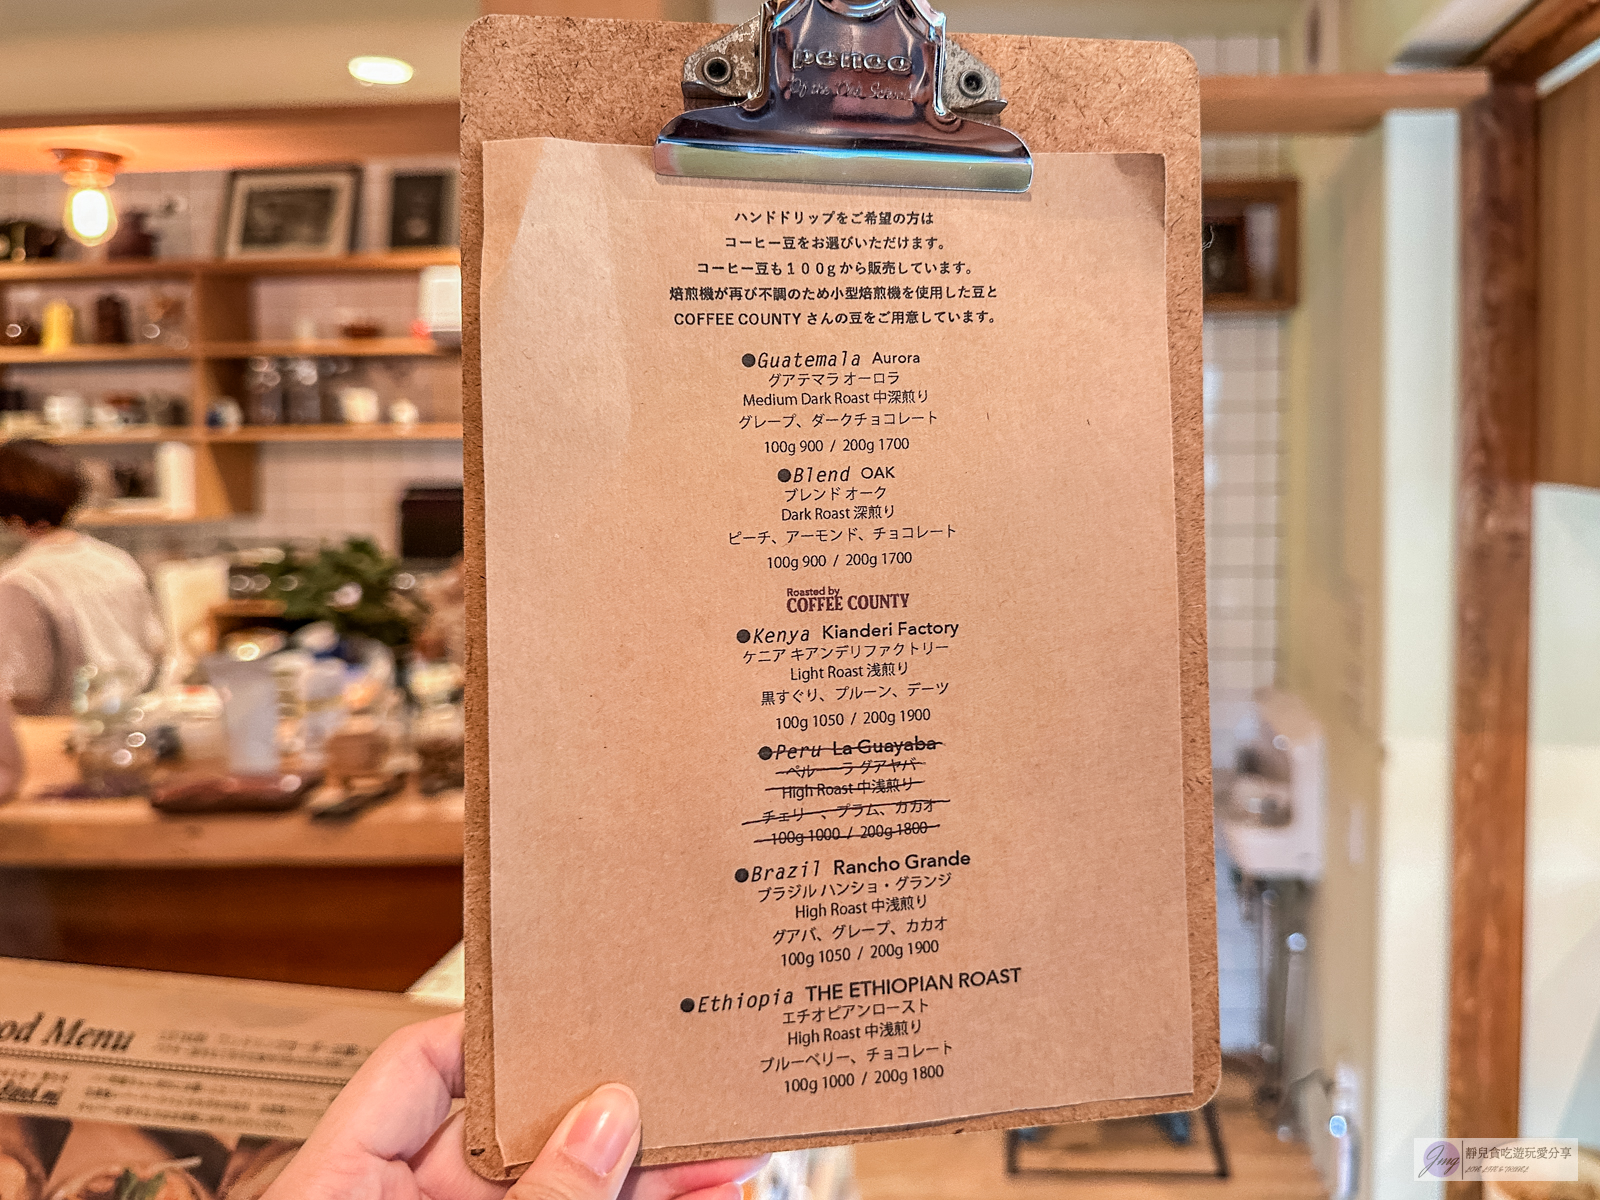 penco
ハンドドリップをご希望の方は
コーヒー豆をお選びいただけます。
コーヒー豆も１００ｇから販売しています。
焙煎機が再び不調のため小型焙煎機を使用した豆と
COFFEE COUNTY さんの豆をご用意しています。
●Guatemala Aurora
グアテマラ オーロラ
Medium Dark Roast 中深煎り
グレープ、ダークチョコレート
100g 900 / 200g 1700
●Blend OAK
ブレンド オーク
Dark Roast 深煎り
ピーチ、アーモンド、チョコレート
100g 900 / 200g 1700
Roasted by
COFFEE COUNTY
●Kenya Kianderi Factory
ケニア キアンデリファクトリー
Light Roast 浅煎り
黒すぐり、プルーン、デーツ
100g 1050 / 200g 1900
●Peru La Guayaba
ペルー ラ グアヤバ
High Roast 中浅煎り
チェリー、プラム、カカオ
100g 1000 / 200g 1800
●Brazil Rancho Grande
ブラジル ハンショ・グランジ
High Roast 中浅煎り
グアバ、グレープ、カカオ
100g 1050 / 200g 1900
●Ethiopia THE ETHIOPIAN ROAST
エチオピアンロースト
High Roast 中浅煎り
ブルーベリー、チョコレート
100g 1000 / 200g 1800
od Menu
Jing
靜兒貪吃遊玩愛分享